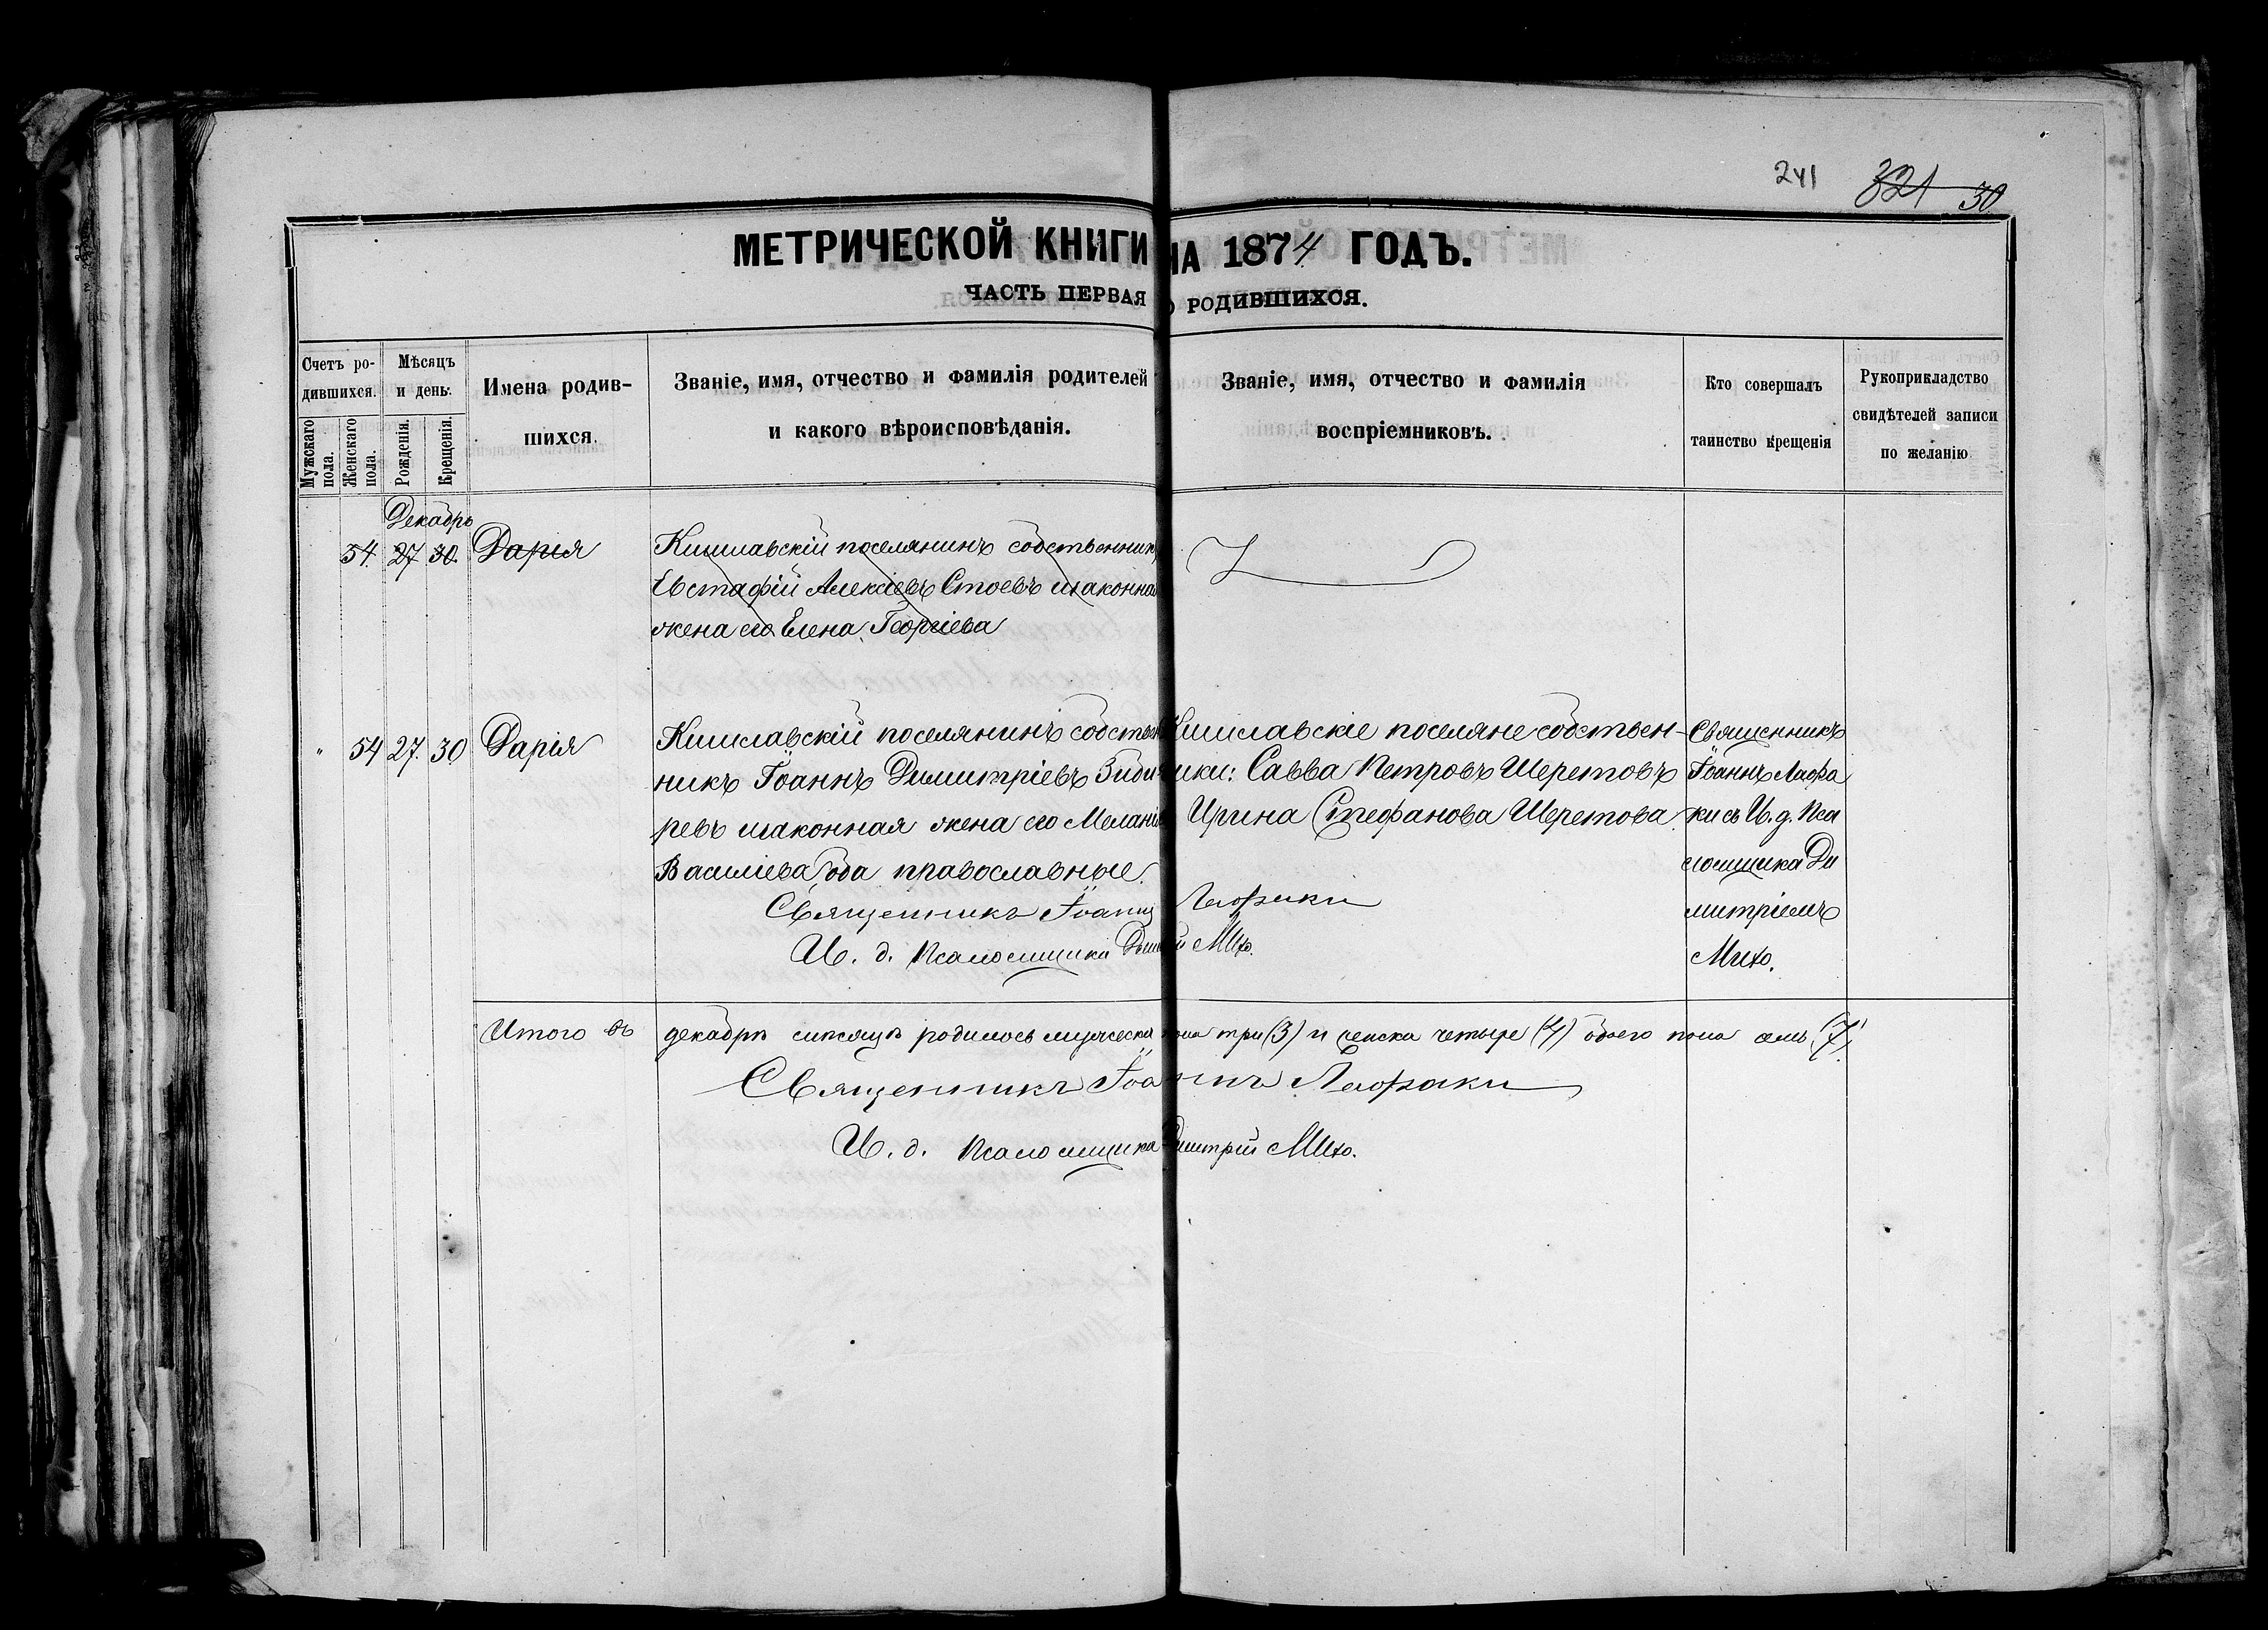 241 321 30
МЕТРИЧЕСКОЙ КНИГИ НА 1874 ГОДЪ.
ЧАСТЬ ПЕРВАЯ О РОДИВШИХСЯ.
Счетъ ро-
дившихся.
Мужскаго
пола.
Женскаго
пола.
Мѣсяцъ
и день.
Рожденія.
Крещенія.
Имена родив-
шихся.
Званіе, имя, отчество и фамилія родителей
и какого вѣроисповѣданія.
Званіе, имя, отчество и фамилія
воспріемниковъ.
Кто совершалъ
таинство крещенія
Рукоприкладство
свидѣтелей записи
по желанію
Декабрь
54 27 30 Дарія
Кишлавскій поселянинъ собственник
Евстафій Алексіевъ Стоевъ и законна
жена его Елена Георгіева
" 54 27. 30 Дарія
Кишлавскій поселянинъ собствен
никъ Іоаннъ Димитріевъ Зиди
ревъ и законная жена его Меланія
Василіева оба православные.
Кишлавскіе поселяне собствен-
ники: Савва Петровъ Шеретовъ
Ирина Стефанова Шеретова.
Священникъ
Іоаннъ Лафа
ки съ И. д. Пса
ломщика Ди
митріемъ
Михо.
Священникъ Іоаннъ Лафаки
И. д. Псаломщика Димитрій Михо.
Итого въ декабрѣ мѣсяцѣ родилось мужеска пола три (3) и женска четыре (4) обоего пола семь (7)
Священникъ Іоаннъ Лафаки
И. д. Псаломщика Димитрій Михо.